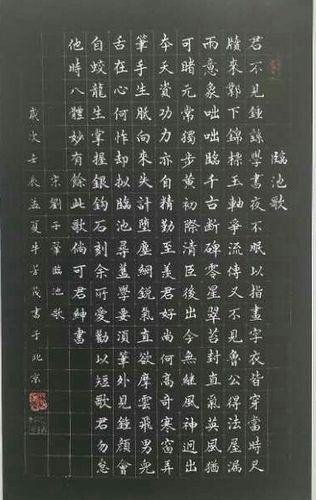 臨池歌
君不見鍾繇學書夜不眠以指畫字衣皆穿當時尺
牘來鄴下錦標玉軸爭流傳又不見魯公得法屋漏
雨意象咄咄臨千古斷碑零星翠苔封直氣英風猶
可睹元常獨步黃初際清臣後出今無繼風神迥出
本天資功力亦自精勤至美君好尚何高奇寒窗弄
筆手生胝向來失計墮塵網銳氣直欲摩雲飛男兒
舌在心何怍却擬臨池尋舊學要須筆外見鍾顏會
自蛟龍生掌握銀鈎石刻余所愛勸以短歌君勿怠
他時八體妙有餘此歌倘可君紳書
宋劉子翬臨池歌
歲次壬辰孟夏牛茂書于北京